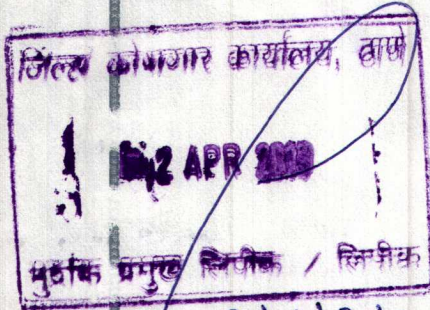 जिल्हा कोषागार कार्यालय, ठाणे
2 APR
मुद्रांक प्रमुख लिपीक / लिपीक